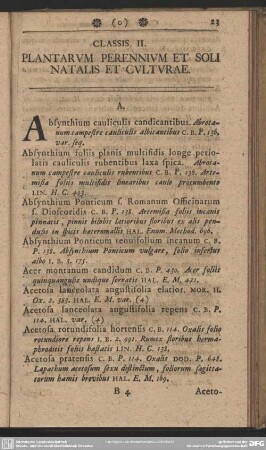 (o) 23
CLASSIS II.
PLANTARVM PERENNIVM ET SOLI
NATALIS ET CVLTVRAE.
A.
Absynthium cauliculis candicantibus. Abrota-
num campestre cauliculis albicantibus C. B. P. 136.
var. seq.
Absynthium foliis planis multifidis longe petio-
latis cauliculis rubentibus laxa spica. Abrota-
num campestre cauliculis rubentibus C. B. P. 136. Arte-
misia foliis multifidis linearibus caule procumbente
LIN. H. C. 403.
Absynthium Ponticum s. Romanum Officinarum
s. Dioscoridis C. B. P. 138. Artemisia foliis incanis
pinnatis, pinnis bifidis latioribus floribus ex alis pen-
dulis in spicis heteromallis HAL. Enum. Method. 696.
Absynthium Ponticum tenuifolium incanum C. B.
P. 138. Absynthium Ponticum vulgare, folio inferius
albo I. B. 3. 175.
Acer montanum candidum C. B. P. 430. Acer foliis
quinquangulis undique serratis HAL. E. M. 421.
Acetosa lanceolata angustifolia elatior. MOR. II.
Ox. 2. 583. HAL. E. M. var. (4)
Acetosa lanceolata angustifolia repens C. B. P.
114. HAL. var. (4)
Acetosa rotundifolia hortensis C. B. 114. Oxalis folio
rotundiore repens I. B. 2. 991. Rumex floribus herma-
phroditis foliis hastatis LIN. H. C. 138.
Acetosa pratensis C. B. P. 114. Oxalis DOD. P. 648.
Lapathum acetosum sexu distinctum, foliorum sagitta-
torum hamis brevibus HAL. E. M. 169.
B 4 Aceto-